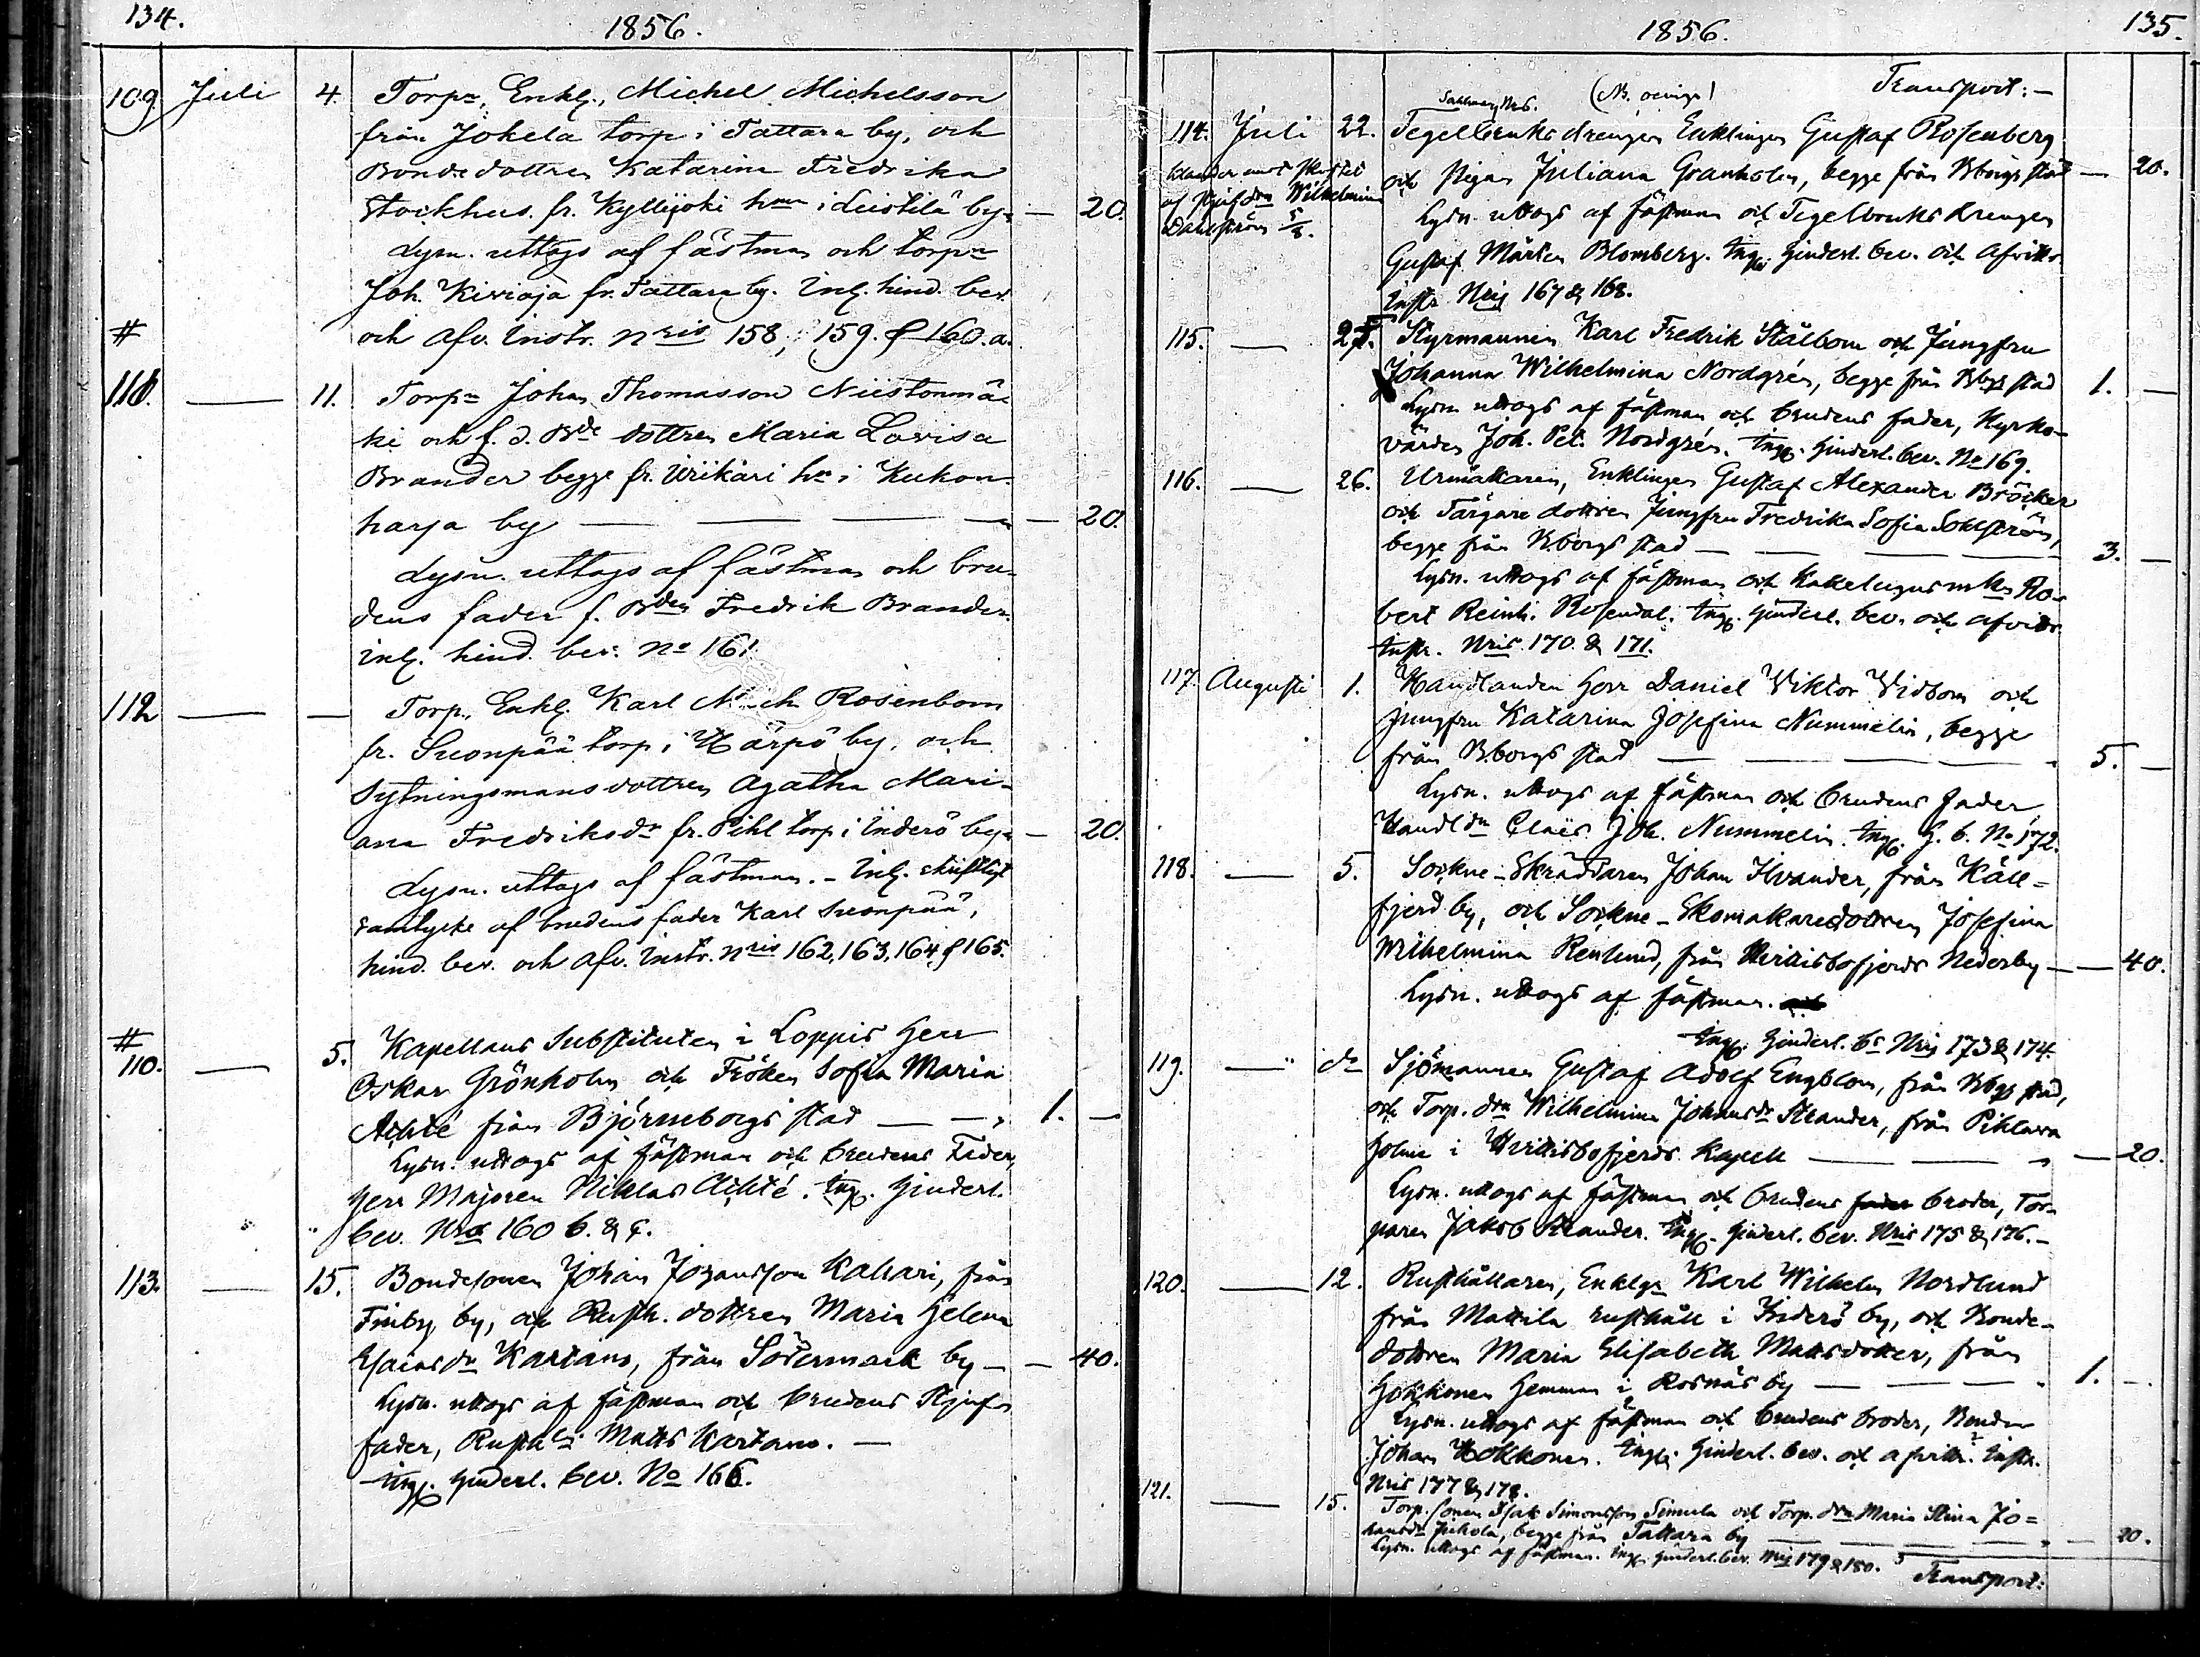 134.
1856.
109. Juli 4. Torpn, Enkl., Michel Michelsson
från Jokela torp i Tattara by, och
Bondedottren Katarina Fredrika
Stockhus. fr. Kyllijoki hmn i Leistilä by — 20.
Lysn. uttogs af fästman och torpn
Joh. Kivioja fr. Tattara by. Inl. hind. bev.
# och afv. Instr. nris 158, 159. & 160. a.
111. — 11. Torpn Johan Thomasson Niistonmä-
ki och f. d. Bde dottren Maria Lovisa
Brander begge fr. Uriikari hn i Kukon-
harja by — 20.
Lysn. uttogs af fästman och bru-
dens fader f. Bden Fredrik Brander.
Inl. hind. bev. No 161.
112 — — Torp., Enkl. Karl Mich. Rosenbom
fr. Suonpää torp i Härpö by, och
Sytningsmansdottren Agatha Mari-
ana Fredriksdr fr. Pihl torp i Inderö by — 20.
Lysn. uttogs af fästman. – Inl. skriftligt
samtycke af brudens fader Karl Suonpää,
hind. bev. och afv. Instr. nris 162, 163, 164, & 165.
#
110. — 5. Kapellans Substituten i Loppis Herr
Oskar Grönholm och Fröken Sofia Maria
Achté från Björneborgs stad — 1. —
Lysn. uttogs af fästman och brudens Fader,
Herr Majoren Niklas Achté. Ingg. Hinderl.
bev. Nris 160 b. & c.
113. — 15. Bondesonen Johan Johansson Kahari, från
Finby by, och Rusth. dottren Maria Helena
Esaiasdr Kartano, från Södermark by — — 40.
Lysn. uttogs af fästman och brudens Styf-
fader, Rusth. Matts Kartano. —
Ingg. Hinderl. bev. No 166.
1856.
135.
(Nb. ) Transport: —
114. Juli 22. Tegelbruks drengen Enklingen Gustaf Rosenberg
och Pigan Juliana Granholm, begge från Bborgs stad — 20.
af Wilhelmina
Dahlström 5/8.
Lysn. uttogs af fästman och Tegelbruks drengen
Gustaf Mårten Blomberg. Ingg. Hinderl. bev. och afvittr.
Instr. Nris 167 & 168.
115. — 25. Styrmannen Karl Fredrik Stålbom och Jungfru
Johanna Wilhelmina Nordgrén, begge från Bbgs stad 1. —
Lysn. uttogs af fästman och brudens fader, Kyrko-
värden Joh. Pet. Nordgrén. Ingg. Hinderl. bev. No 169.
116. — 26. Urmakaren, Enklingen Gustaf Alexander Bröcker
och Färgare dottren Jungfru Fredrika Sofia Sohlström,
begge från Bborgs stad — 3. —
Lysn. uttogs af fästman och Kakelugnsmkn Ro-
bert Reinh. Rosendal. Ingg. Hinderl. bev. och afvittr.
Instr. Nris 170. & 171.
117. Augusti 1. Handlanden Herr Daniel Viktor Widbom och
Jungfru Katarina Josefina Nummelin, begge
från Bborgs stad — 5. —
Lysn. uttogs af fästman och brudens fader
Handldn Claës Joh. Nummelin. Ingg. H. b. No 172.
118. — 5. Sockne-Skräddaren Johan Ilvander, från Käll-
fjerd by, och Sockne-Skomakaredottren Josefina
Wilhelmina Renlund, från Hvittisbofjerds Nederby — — 40.
Lysn. uttogs af fästman. och
Ingg. Hinderl. bs Nris 173 & 174.
119. — " do Sjömannen Gustaf Adolf Engblom, från Bbgs stad,
och Torp. dtn Wilhelmina Johansdr Strander, från Pihlava
holme i Hvittisbofjerds Kapell — — 20.
Lysn. uttogs af fästman och brudens fader broder, Tor-
paren Jakob Strander. Ingg. Hinderl. bev. Nris 175 & 176. —
120. — 12. Rusthållaren, Enklgn Karl Wilhelm Nordlund
från Mattila rusthåll i Inderö by, och Bonde-
dottren Maria Elisabeth Mattsdotter, från
Hokkonen Hemman i Rosnäs by — 1. —
Lysn. uttogs af fästman och brudens broder, Bonden
Johan Hokkonen. Ingg. Hinderl. bev. och afvittr. Instr.
Nris 177 & 178.
121. — 15. Torp. sonen Isak Simonsson Simula och Torp. dtn Maria Stina Jo-
hansdr Juhola, begge från Tattara by — 20.
Lysn. uttogs af fästman. Ingg. Hinderl. bev. Nris 179 & 180.
Transport: